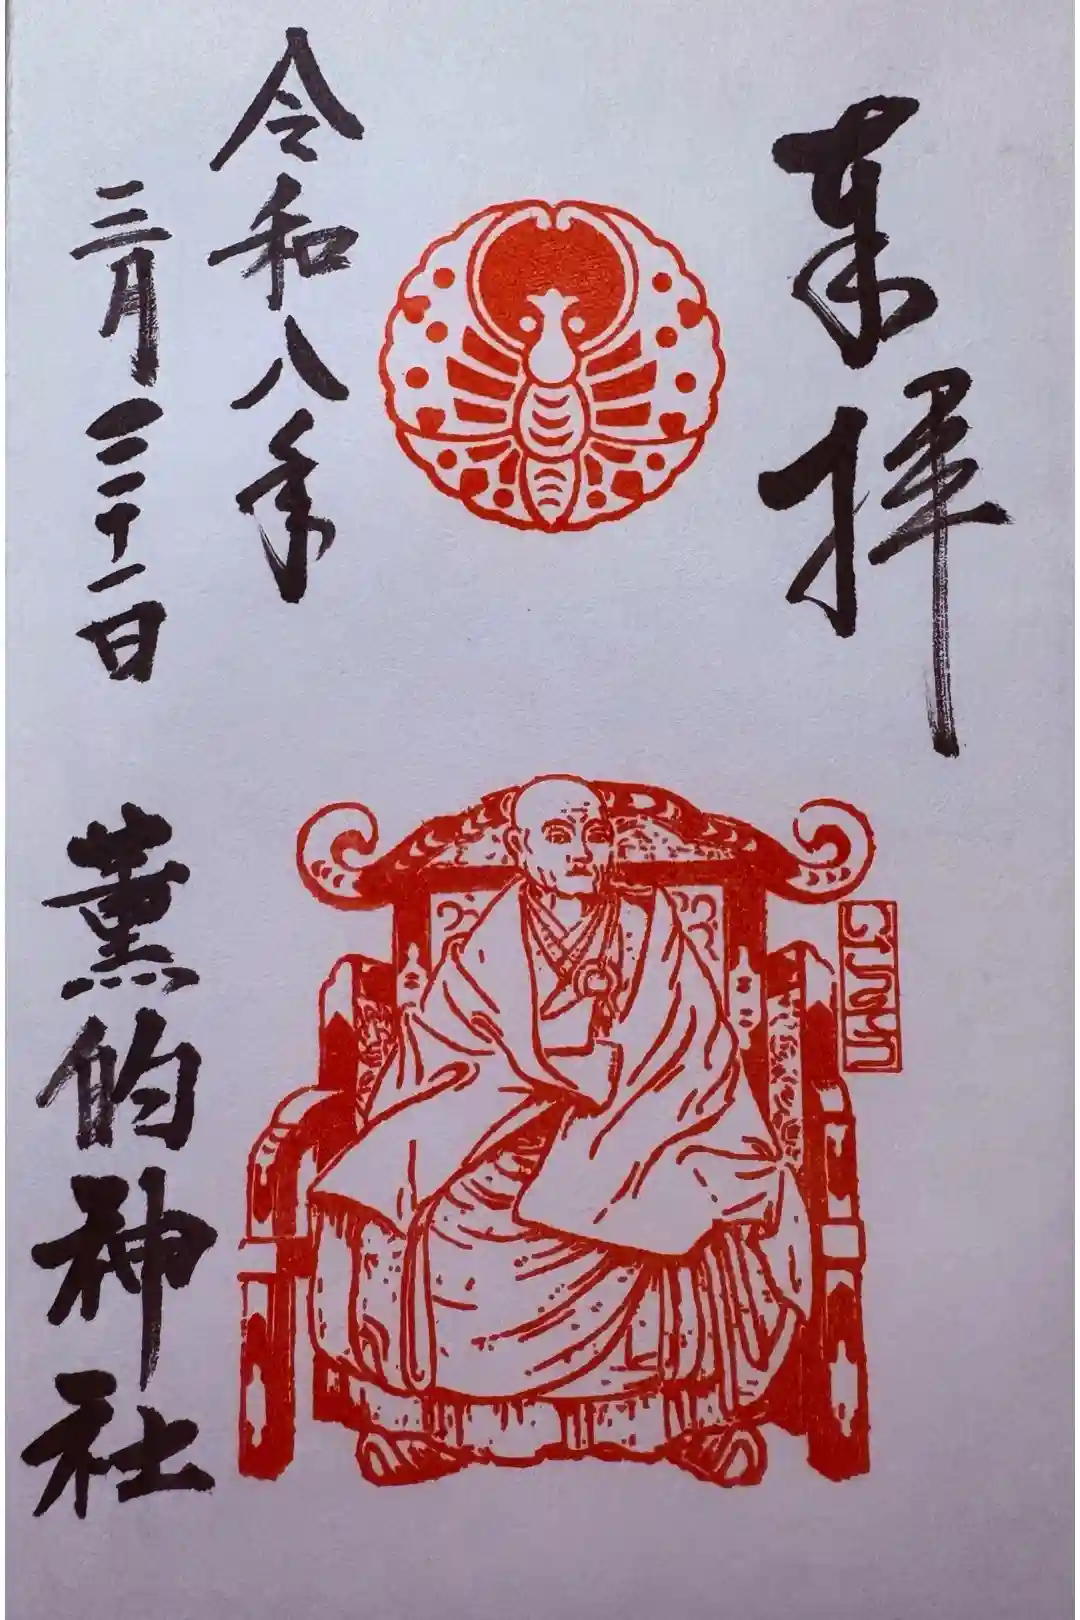 奉拝
令和八年
三月三十一日
薫的神社